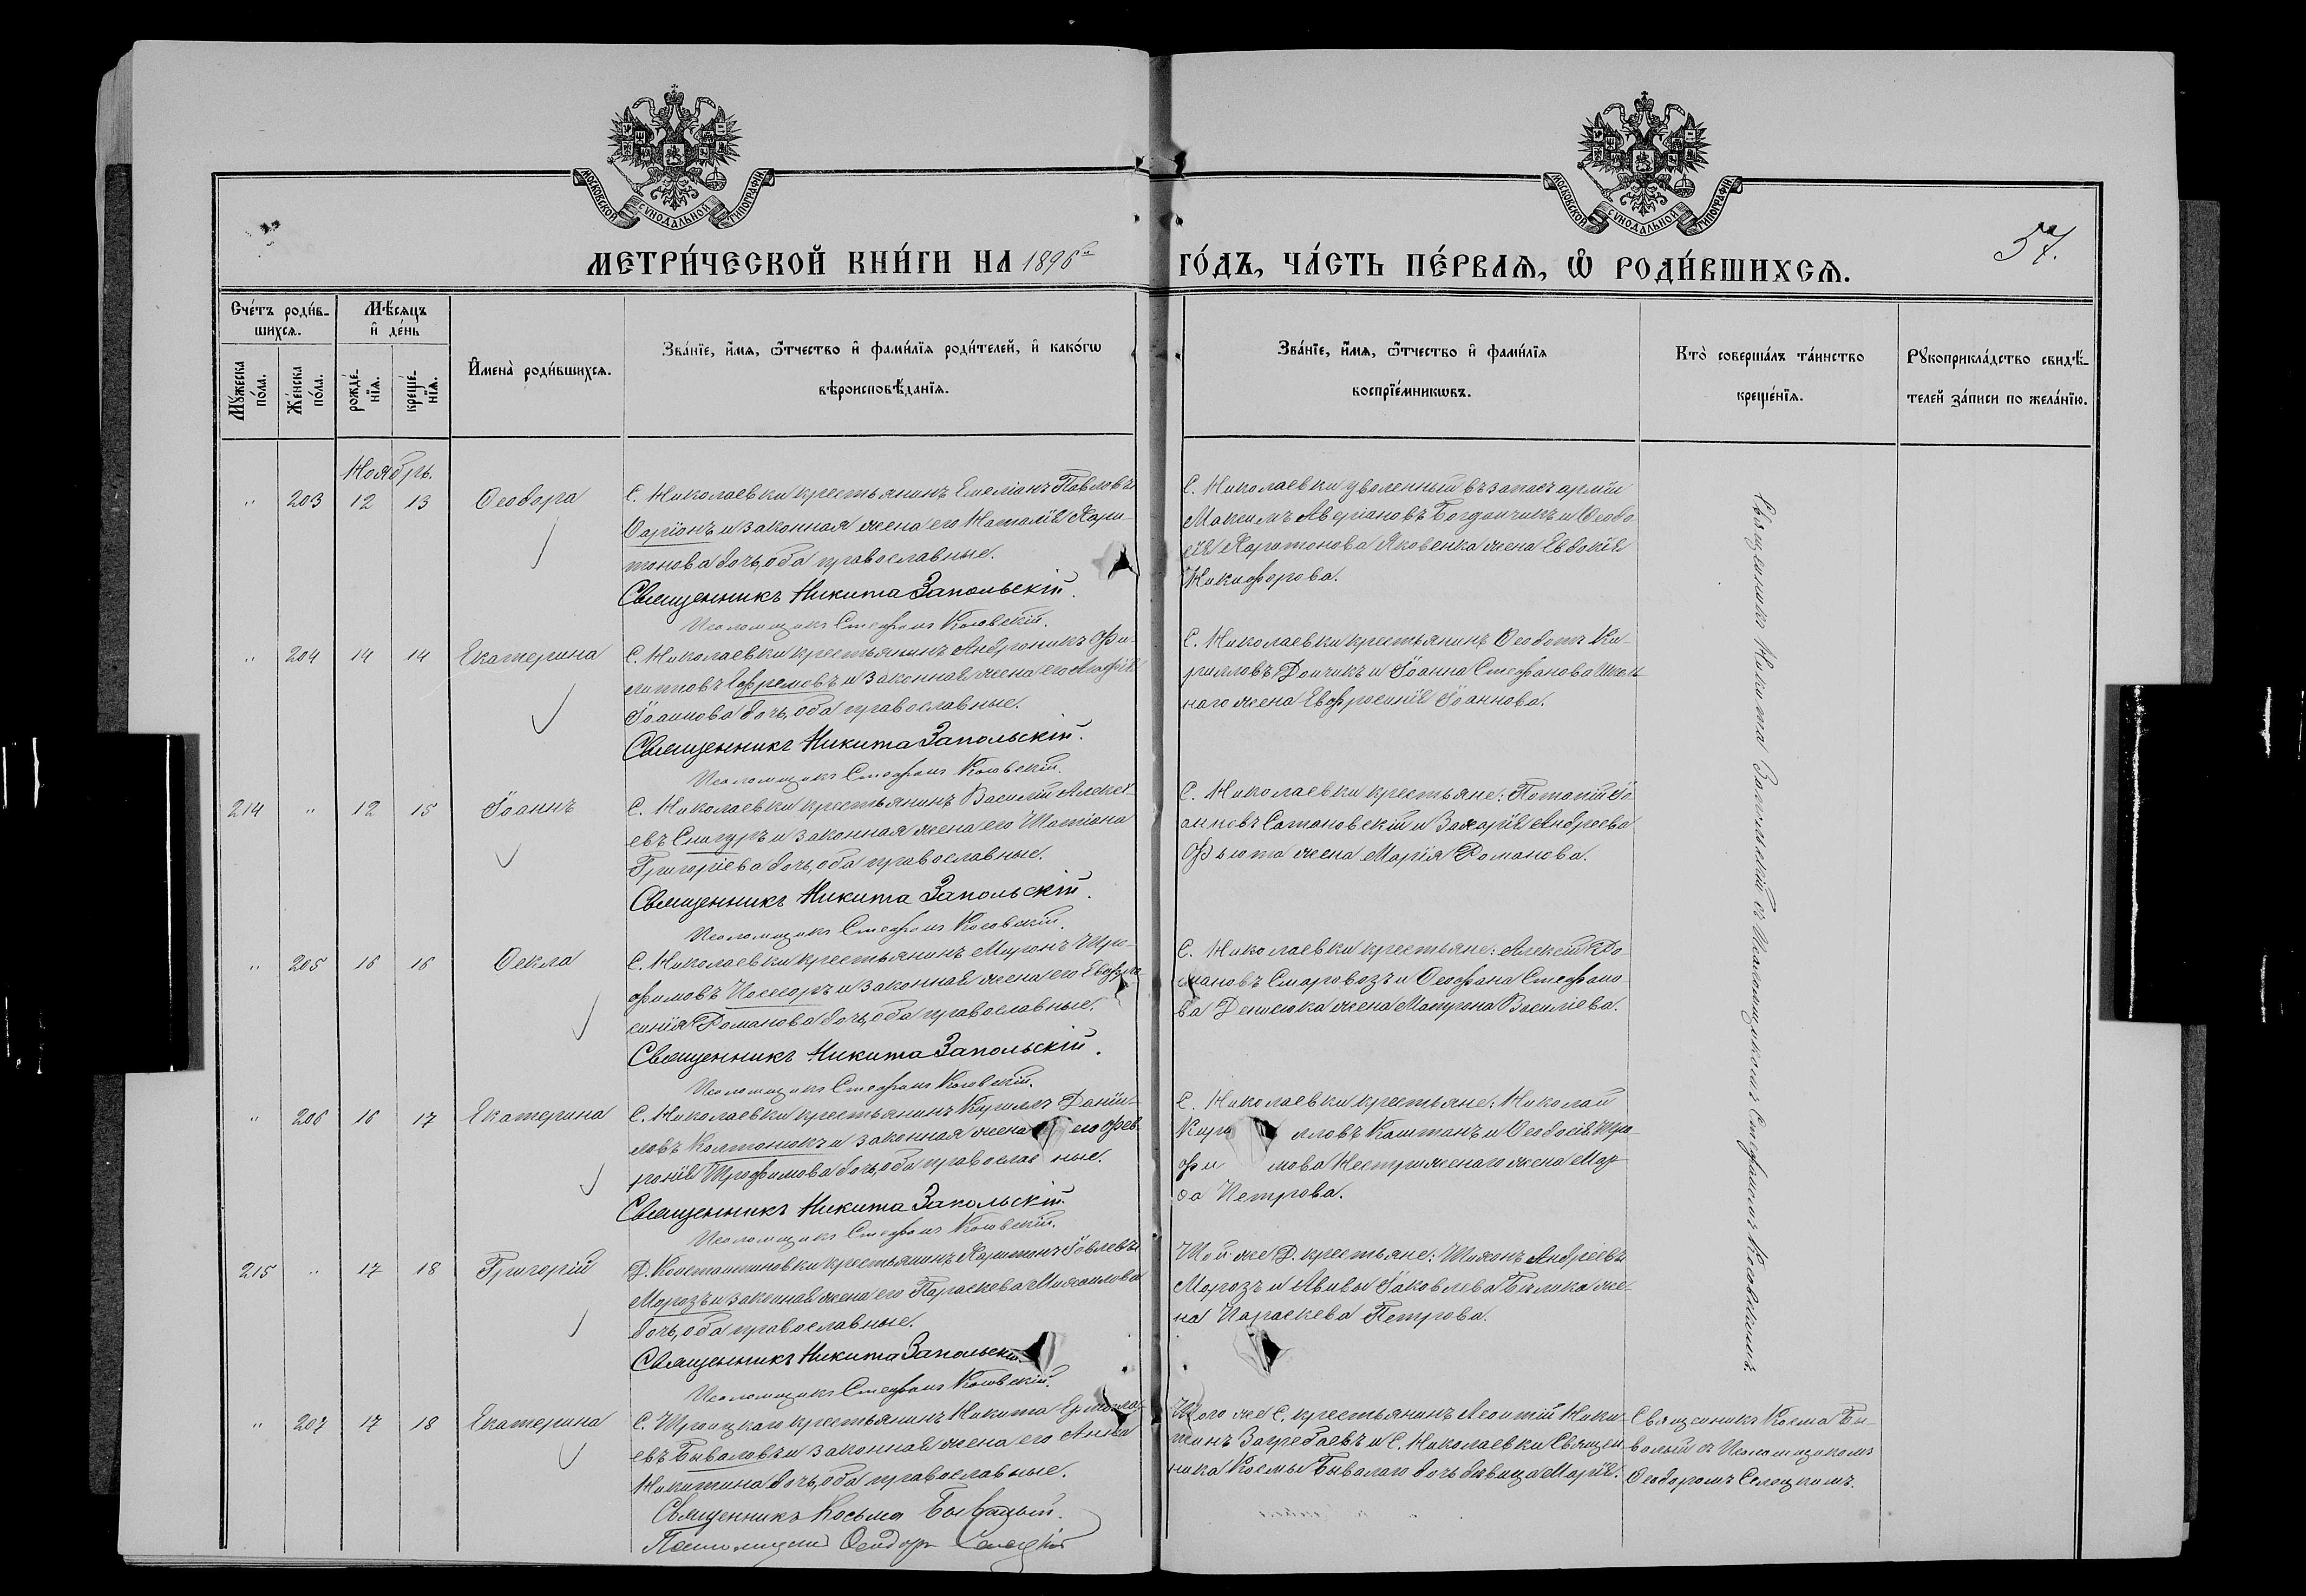 МОСКОВСКОЙ СѴНОДАЛЬНОЙ ТИПОГРАФІИ
МОСКОВСКОЙ СѴНОДАЛЬНОЙ ТИПОГРАФІИ
57.
МЕТРИ́ЧЕСКОЙ КНИ́ГИ НА 1896й
ГО́ДЪ, ЧА́СТЬ ПЕ́РВАѦ, Ѡ҆ РОДИ́ВШИХСѦ.
Сче́тъ роди́в-
шихсѧ.
Мѣ́сѧцъ
и҆ де́нь
Мꙋ́жеска
по́ла.
Же́нска
по́ла.
рожде́-
нїѧ.
креще́-
нїѧ.
И҆мена̀ роди́вшихсѧ.
Зва́нїе, и҆́мѧ, ѻ҆́тчество и҆ фами́лїѧ роди́телей, и҆ како́гѡ
вѣроисповѣ́данїѧ.
Зва́нїе, и҆́мѧ, ѻ҆́тчество и҆ фами́лїѧ
воспрїе́мникѡвъ.
Кто̀ соверша́лъ та́инство
креще́нїѧ.
Рꙋкоприкла́дство свидѣ́-
телей за́писи по жела́нїю.
Ноябрь.
" 203 12 13 Ѳеодора
С. Николаевки крестьянинъ Емеліанъ Павловъ
Ѳаріонъ и законная жена его Наталія Хари-
тонова дочь, оба православные.
Священникъ Никита Запольскій.
Псаломщикъ Стефанъ Косовскій.
С. Николаевки уволенный въ запасъ арміи
Максимъ Аверіановъ Богдончикъ и Ѳеодо
сія Харитонова Яковенка жена Евдокія
Никифорова.
" 204 14 14 Екатерина
С. Николаевки крестьянинъ Андроникъ Фи-
липповъ Ефремовъ и законная жена его Агафія
Іоаннова дочь, оба православные.
Священникъ Никита Запольскій.
Псаломщикъ Стефанъ Косовскій.
С. Николаевки крестьянинъ Ѳеодотъ Ки-
рилловъ Дончикъ и Іоанна Стефанова Школь
наго жена Евфросинія Іоаннова.
214 " 12 15 Іоаннъ
С. Николаевки крестьянинъ Василій Алексѣ-
евъ Снигуръ и законная жена его Татіана
Григоріева дочь, оба православные.
Священникъ Никита Запольскій.
Псаломщикъ Стефанъ Косовскій.
С. Николаевки крестьяне: Потапій Іо
анновъ Сатановскій и Захарія Андреева
Фъюта жена Марія Романова.
" 205 16 16 Ѳекла
С. Николаевки крестьянинъ Миронъ Тро-
фимовъ Посесоръ и законная жена его Евфро
синія Романова дочь, оба православные.
Священникъ Никита Запольскій.
Псаломщикъ Стефанъ Косовскій.
С. Николаевки крестьяне: Алексій Ро-
мановъ Старовозъ и Ѳеофана Стефано-
ва Денисюка жена Матрона Василіева.
" 206 16 17 Екатерина
С. Николаевки крестьянинъ Кириллъ Даніи-
ловъ Колтонюкъ и законная жена его Фев
ронія Трофимова дочь, оба православ ные.
Священникъ Никита Запольскій.
Псаломщикъ Стефанъ Косовскій.
С. Николаевки крестьяне: Николай
Кири лловъ Каштанъ и Ѳеодосія Тро-
фи мова Нестриженаго жена Мар
ѳа Петрова.
215 " 17 18 Григорій
Д. Константиновки крестьянинъ Харитонъ Іовлевъ
Морозъ и законная жена его Параскева Михаилова
дочь, оба православные.
Священникъ Никита Запольскій.
Псаломщикъ Стефанъ Косовскій.
Той же Д. крестьяне: Тихонъ Андреевъ
Морозъ и Авивы Іаковлева Билыка же-
на Параскева Петрова.
Священникъ Никита Запольскій съ Псаломщикомъ Стефаномъ Косовскимъ.
" 207 17 18 Екатерина
С. Троицкаго крестьянинъ Никита Ермола-
евъ Бываловъ и законная жена его Анна
Никитина дочь, оба православные.
Священникъ Косьма Бывалый.
Псаломщикъ Ѳеодоръ Селецкій
Того же С. крестьянинъ Леонтій Ники-
тинъ Загребаевъ и С. Николаевки Священ
ника Космы Бывалаго дочь дѣвица Марія.
Священникъ Косма Бы-
валый съ Псаломщикомъ
Ѳеодоромъ Селецкимъ.